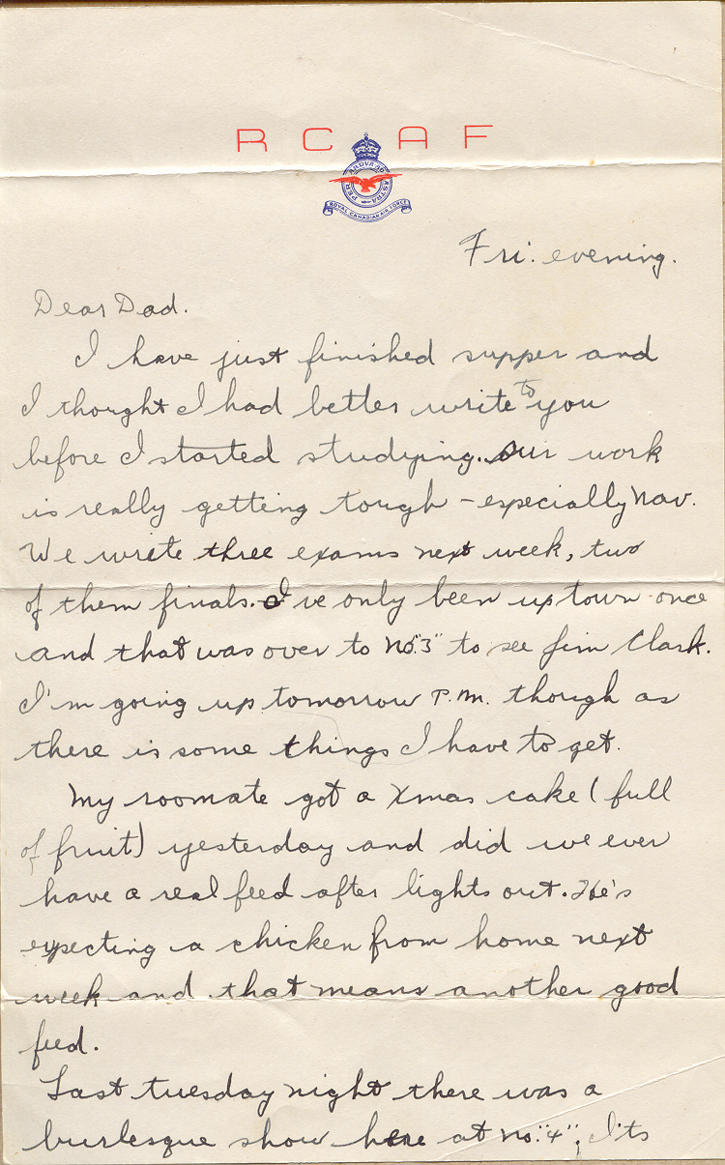 R C A F
PER ARDVA AD ASTRA
ROYAL CANADIAN AIR FORCE
Fri. evening.
Dear Dad.
I have just finished supper and
I thought I had better write to you
before I started studying. Our work
is really getting tough – especially Nav.
We write three exams next week, two
of them finals. I've only been uptown once
and that was over to No. "3" to see Jim Clark.
I'm going up tomorrow P.M. though as
there is some things I have to get.
My roomate got a Xmas cake (full
of fruit) yesterday and did we ever
have a real feed after lights out. He's
expecting a chicken from home next
week and that means another good
feed.
Last tuesday night there was a
burlesque show here at No. "4", It's